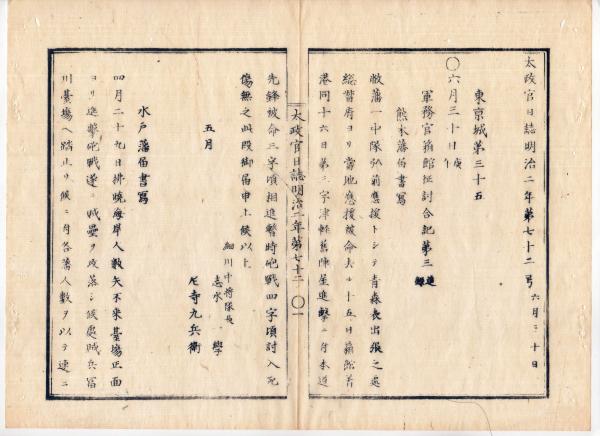 太政官日誌明治二年第七十二号 六月三十日
東京城第三十五
〇六月三十日 庚午
軍務官箱館征討合記第三 進録
熊本藩届書写
敝藩一中隊弘前応援トシテ青森表出張之処
総督府ヨリ当地応援被命去ル十五日箱館着
港同十六日第三字津軽旧陣屋進撃ニ付本道
太政官日誌明治二年第七十二 〇一
先鋒被命三字頃相進暫時砲戦四字頃討入死
傷無之此段御届申上候以上
細川中将隊長
五月 志水一学
尼寺九兵衛
水戸藩届書写
四月二十九日拂暁海岸人数矢不来台場正面
ヨリ進撃砲戦遂ニ賊塁ヲ攻落シ候処賊兵冨
川台場ヘ踏止リ候ニ付各藩人数ヲ以テ速ニ